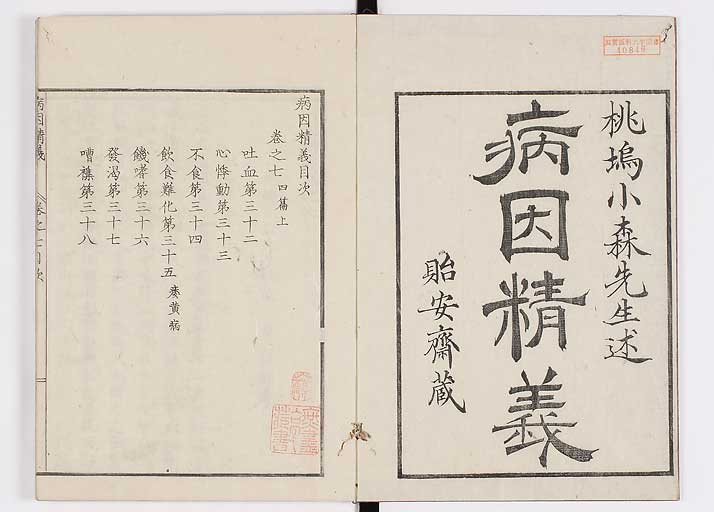 桃塢小森先生述
病因精義
貽安齋蔵
40846
病因精義目次
卷之七 四篇上
吐血第三十二
心悸動第三十三
不食第三十四
飲食難化第三十五 痿黄病
饑嘈第三十六
發渇第三十七
嘈雜第三十八
病因精義 卷之七目次